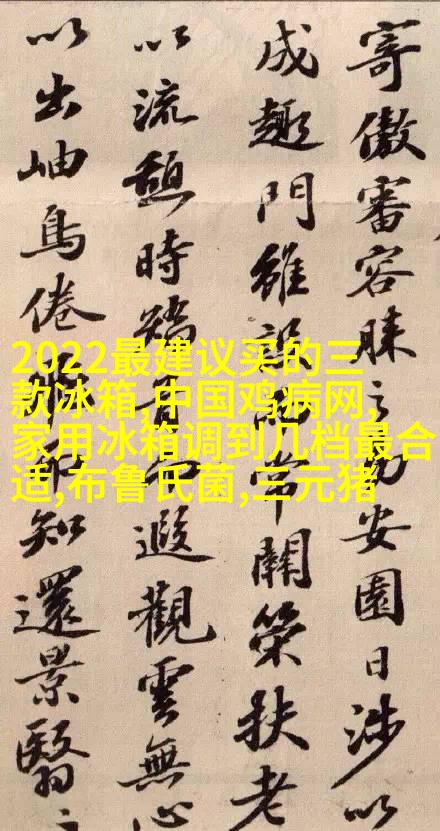 寄傲審容膝之易安園日涉以
成趣門雖設而常關策扶老
以流憩時矯首而遐觀雲無心
以出岫鳥倦飛而知還景翳
2022最建议买的三
款冰箱,中国鸡病网,
家用冰箱调到几档最合
适,布鲁氏菌,三元猪